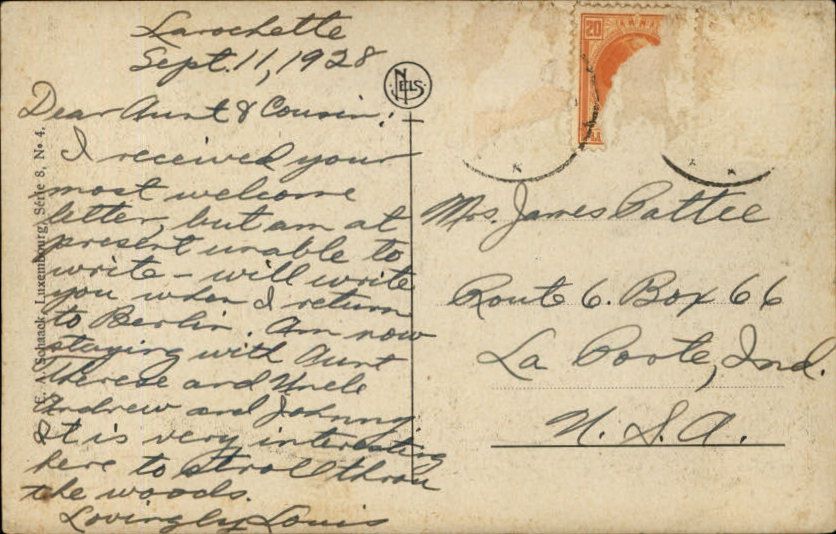 Larochette
Sept. 11, 1928
Dear Aunt & Cousin:
I received your
most welcome
letter, but am at
present unable to
write - will write
you when I return
to Berlin. Am now
staying with Aunt
Therese and Uncle
Andrew and Johnny.
It is very interesting
here to stroll throu
the woods.
Lovingly Louis
E. A. Schaack, Luxembourg, Série 8, No 4.
NELS
20
Mrs. James Pattee
Route 6. Box 66
La Porte, Ind.
U. S. A.